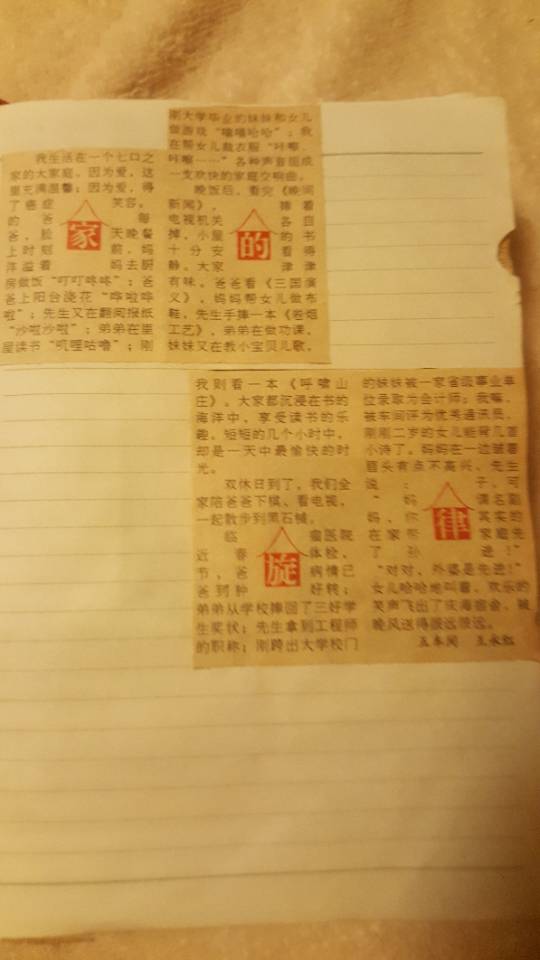 我生活在一个七口之
家的大家庭，因为爱，这
里充满温馨；因为爱，得
了癌症 笑容。
的爸 每
爸，脸 家 天晚餐
上时刻 前，妈
洋溢着 妈去厨
房做饭“叮叮咚咚”；爸
爸上阳台浇花“哗啦哗
啦”；先生又在翻阅报纸
“沙啦沙啦”；弟弟在里
屋读书“叽哩咕噜”；刚
刚大学毕业的妹妹和女儿
做游戏“嘻嘻哈哈”；我
在帮女儿裁衣服“咔嚓，
咔嚓……”各种声音组成
一支欢快的家庭交响曲。
晚饭后，看完《晚间
新闻》， 捧着
电视机关 各自
掉，小屋 的 的书
十分安 看得
静。大家 津津
有味。爸爸看《三国演
义》，妈妈帮女儿做布
鞋，先生手捧一本《卷烟
工艺》，弟弟在做功课，
妹妹又在教小宝贝儿歌，
我则看一本《呼啸山
庄》。大家都沉浸在书的
海洋中，享受读书的乐
趣。短短的几个小时中，
却是一天中最愉快的时
光。
双休日到了，我们全
家陪爸爸下棋、看电视，
一起散步到黑石桥。
临 瘤医院
近春 体检，
节，爸 旋 病情已
爸到肿 好转；
弟弟从学校捧回了三好学
生奖状；先生拿到工程师
的职称；刚跨出大学校门
的妹妹被一家省级事业单
位录取为会计师；我嘛，
被车间评为优秀通讯员，
刚刚二岁的女儿能背几首
小诗了。妈妈在一边皱着
眉头有点不高兴，先生
说： 子，可
“妈 谓名副
妈，你 律 其实的
在家带 家庭先
了孙 进！”
“对对，外婆是先进！”
女儿哈哈地叫着，欢乐的
笑声飞出了宿舍，被
晚风送得很远很远。
五车间 王永红